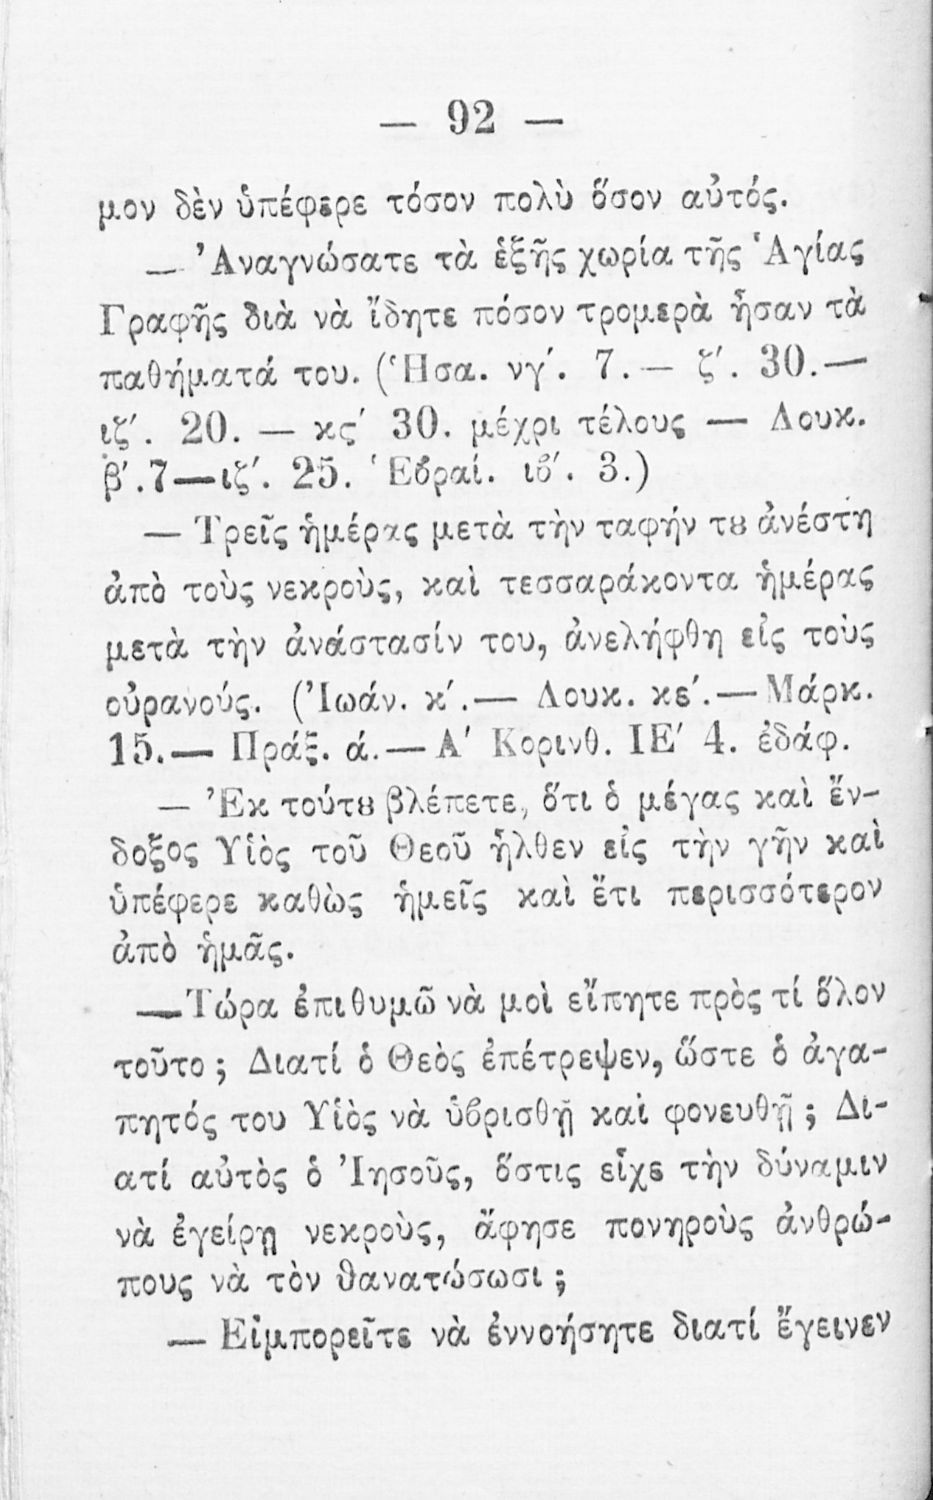 — 92 —
μον δὲν ὑπέφερε τόσον πολὺ ὅσον αὐτός.
— Ἀναγνώσατε τὰ ἑξῆς χωρία τῆς Ἁγίας
Γραφῆς διὰ νὰ ἴδητε πόσον τρομερὰ ἦσαν τὰ
παθήματά του. (Ἡσα. νγ΄. 7.— ζ΄. 30.—
ιζ΄. 20. — κς΄ 30. μέχρι τέλους — Λουκ.
β΄.7—ιζ΄. 25. Ἑβραί. ιβ΄. 3.)
— Τρεῖς ἡμέρας μετὰ τὴν ταφήν τȣ ἀνέστη
ἀπὸ τοὺς νεκροὺς, καὶ τεσσαράκοντα ἡμέρας
μετὰ τὴν ἀνάστασίν του, ἀνελήφθη εἰς τοὺς
οὐρανούς. (Ἰωάν. κ΄.— Λουκ. κε΄.—Μάρκ.
15.— Πράξ. ά.— Α΄ Κορινθ. ΙΕ΄ 4. ἐδάφ.
— Ἐκ τούτȣ βλέπετε, ὅτι ὁ μέγας καὶ ἔν-
δοξος Υἱὸς τοῦ Θεοῦ ἦλθεν εἰς τὴν γῆν καὶ
ὑπέφερε καθὼς ἡμεῖς καὶ ἔτι περισσότερον
ἀπὸ ἡμᾶς.
—Τώρα ἐπιθυμῶ νὰ μοὶ εἴπητε πρὸς τί ὅλον
τοῦτο ; Διατί ὁ Θεὸς ἐπέτρεψεν, ὥστε ὁ ἀγα-
πητός του Υἱὸς νὰ ὑβρισθῇ καὶ φονευθῇ ; Δι-
ατί αὐτὸς ὁ Ἰησοῦς, ὅστις εἶχε τὴν δύναμιν
νὰ ἐγείρῃ νεκροὺς, ἄφησε πονηροὺς ἀνθρώ-
πους νὰ τὸν θανατώσωσι ;
— Εἰμπορεῖτε νὰ ἐννοήσητε διατί ἔγεινεν